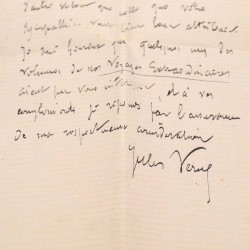 valeur que celle que votre
sympathie veut bien leur attribuer.
Je suis heureux que quelques uns des
volumes de nos Voyages Extraordinaires
aient pu vous intéresser, et à vos
compliments je réponds par l'assurance
de ma respectueuse considération
Jules Verne